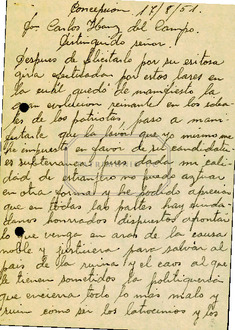 Concepcion 17/8/51.
Sr. Carlos Ibanez del Campo.
Distinguido señor.
Despues de felicitarlo por su exitosa
gira efectuada por estos lares en
la cual quedó de manifiesto la
gran evolucion reinante en los idea-
les de los patriotas, paso a mani-
festarle que la labor que yo mismo me
he impuesto en favor de su candidatu-
ra es subterranea, pues dada mi cali-
dad de extranjero no puedo actuar
en otra forma y he podido apreciar
que en todas las partes hay ciuda-
danos honrados dispuestos aportar
lo que venga en aras de la causa
noble y para salvar al
pais de la ruina y el caos al que
le tienen sometidos la politiqueria
que encierra todo lo mas malo y
ruin como ser los latrocinios y los